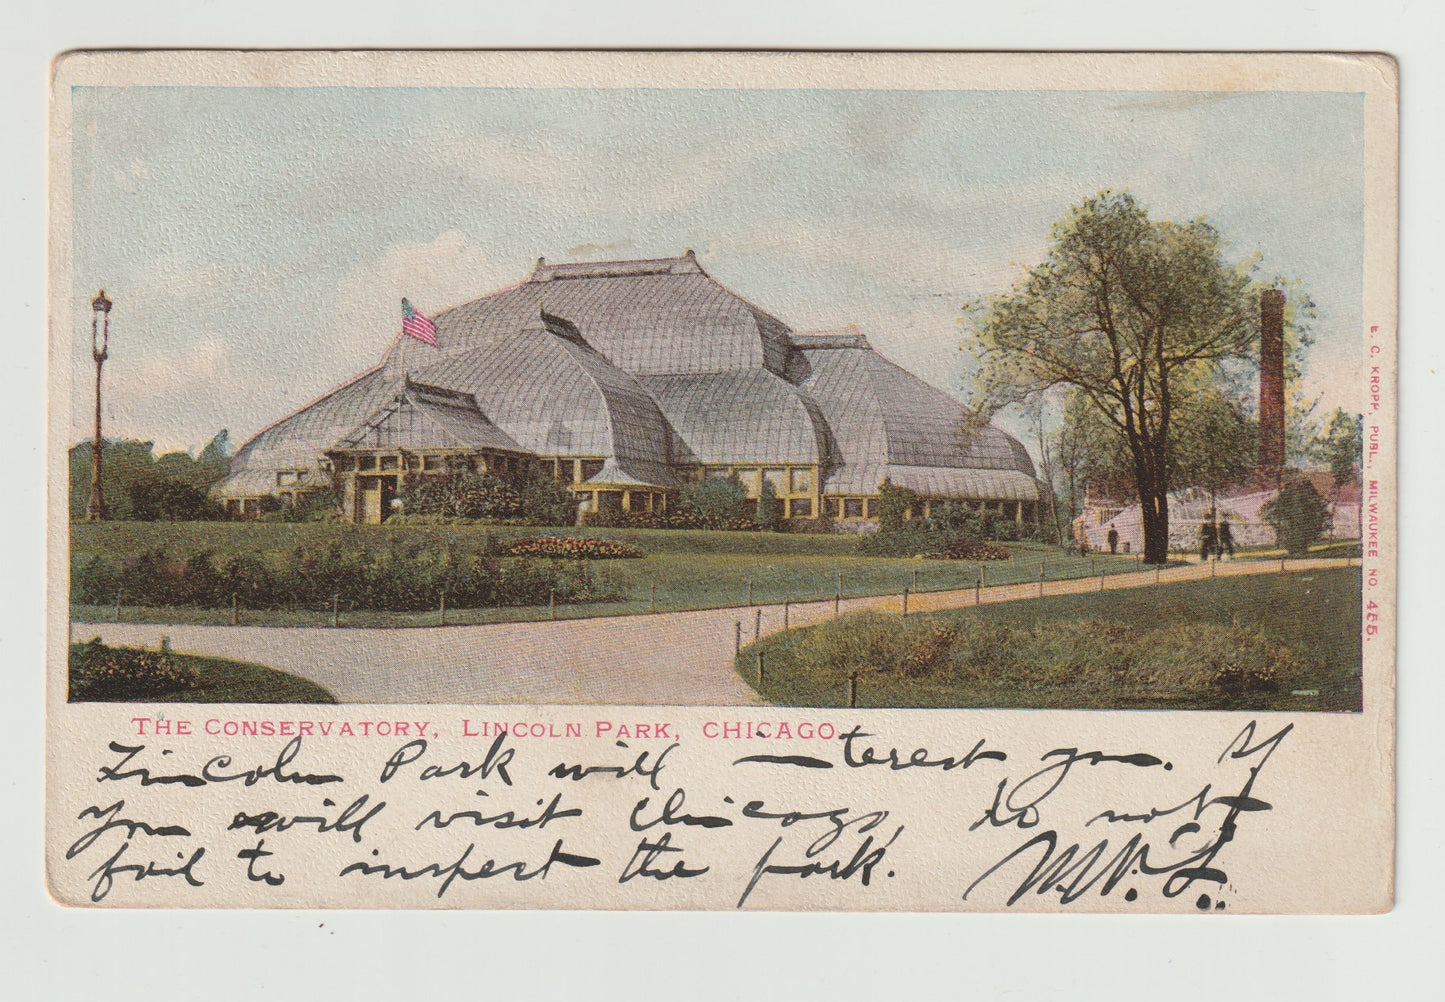 THE CONSERVATORY, LINCOLN PARK, CHICAGO.
Lincoln Park will interest you. If
you will visit Chicago, do not
fail to inspect the park.
E. C. KROPP, PUBL., MILWAUKEE NO 455.